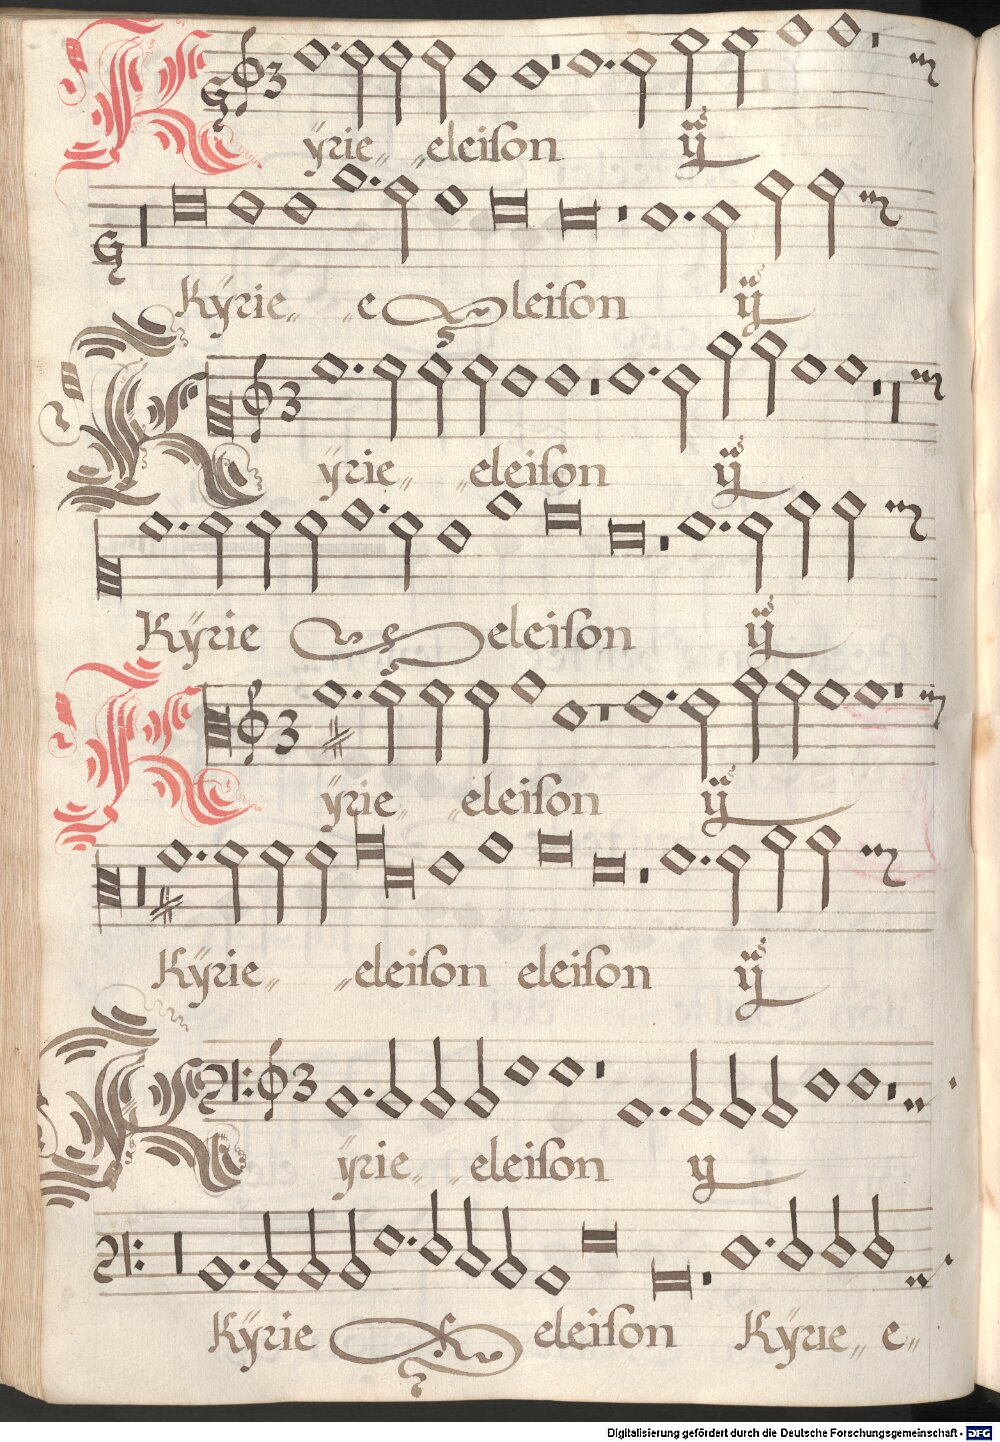 Kÿrie eleiſon ÿ
Kÿrie eleiſon ÿ
Kÿrie eleiſon ÿ
Kÿrie eleiſon ÿ
Kÿrie eleiſon ÿ
Kÿrie eleiſon eleiſon ÿ
Kÿrie eleiſon ÿ
Kÿrie eleiſon Kÿrie e
Digitalisierung gefördert durch die Deutsche Forschungsgemeinschaft - DFG